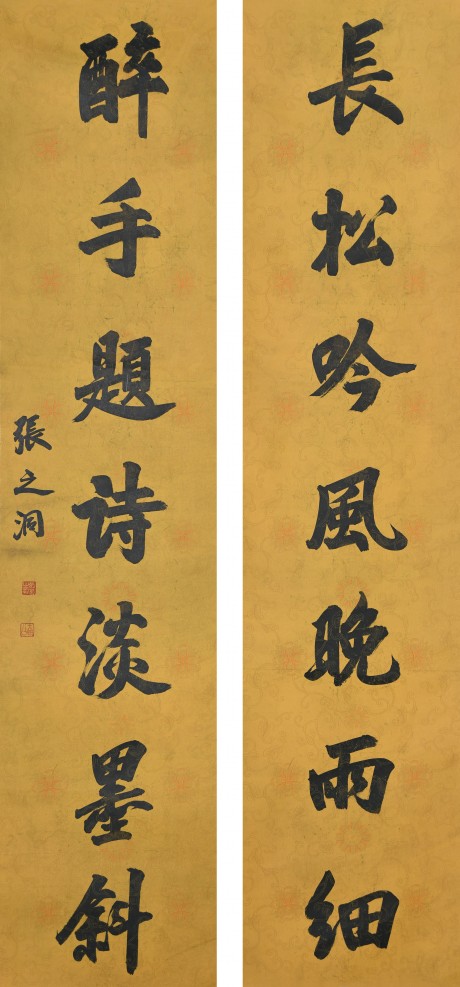 長松吟風晚雨細
醉手題诗淡墨斜
張之洞